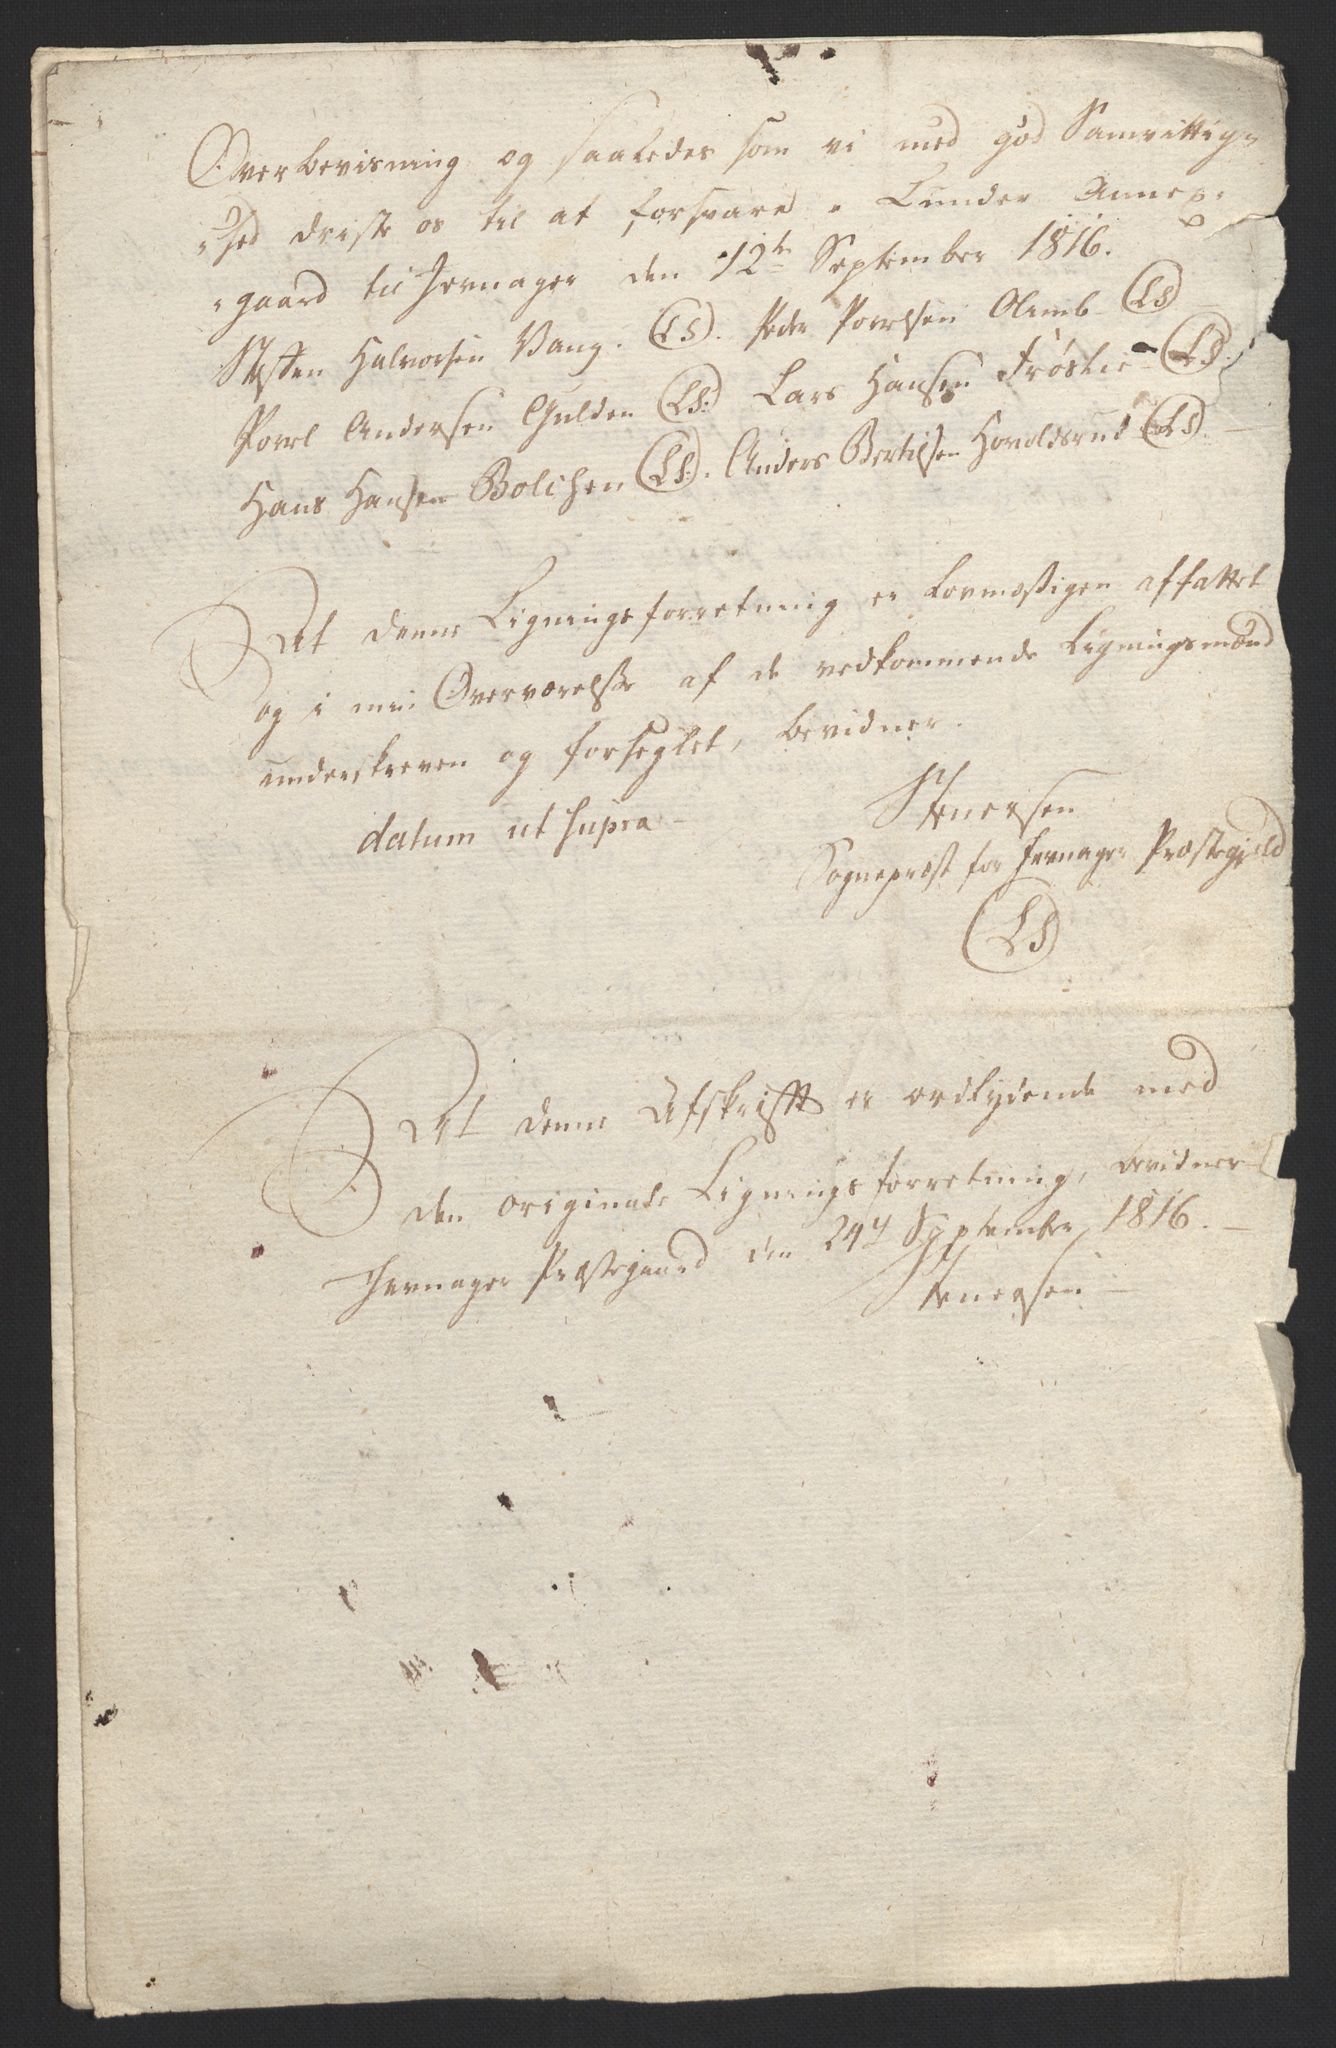 Overbevisning og saaledes som vi med god Samvittig-
-hed driste os til at forsvare. Lunder Annex-
-gaard til Jevnager den 12te September 1816.
Steffen Halvorsen Vang. (LS). Peder Povelsen Olimb (LS)
Povel Andersen Gulden (LS:) Lars Hansen Frøslie (LS)
Hans Hansen Bolichen (LS:). Anders Bertelsen Horoldsrud (LS).
At denne Ligningsforretning er Lovmæssigen affattet
og i min Overværelse af de vedkommende Ligningsmænd
underskreven og forseglet, bevidner.
datum ut supra -
Stenersen
Sognepræst for Jevnager Præstegjeld
(LS)
At denne Afskrifft er ordlydende med
den originale Ligningsforretning, bevidner
Jevnager Præstegaard den 24d September 1816. -
Stenersen